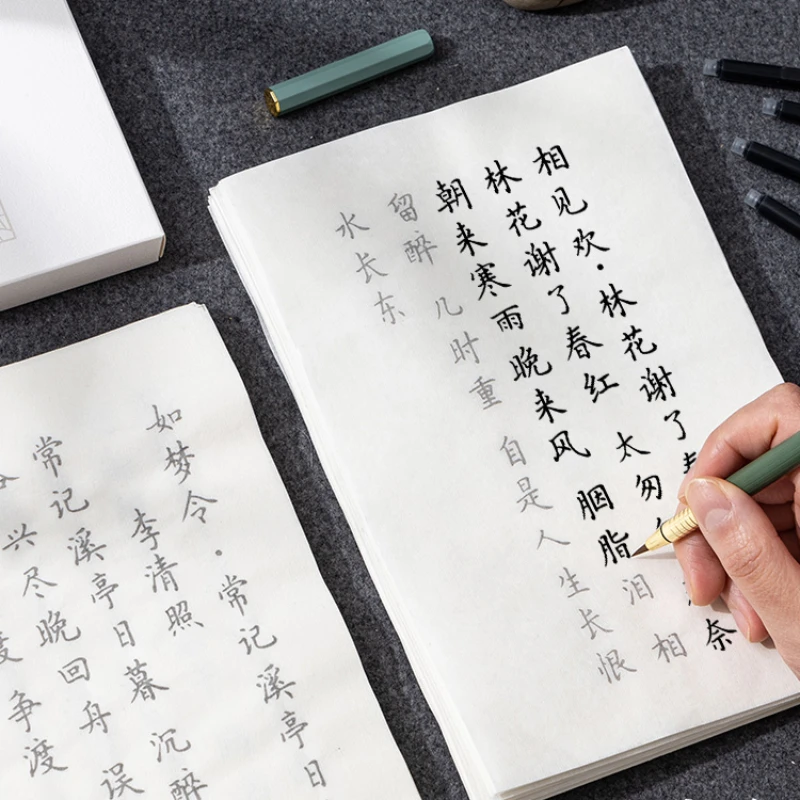 相见欢·林花谢了
林花谢了春红 太匆 奈
朝来寒雨晚来风 胭脂泪 相
留醉 几时重 自是人生长恨
水长东
如梦令·常记溪亭日
李清照
常记溪亭日暮 沉醉
兴尽晚回舟 误
争渡